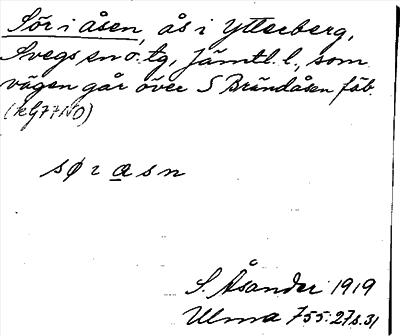 Sör i åsen, ås i Ytterberg,
Svegs sn o. tg, Jämtl. l., som
vägen går över S Brändåsen fäb.
(kG77NO)
sø ɿ a s n
S. Åsander 1919
Ulma 755:27 s. 31